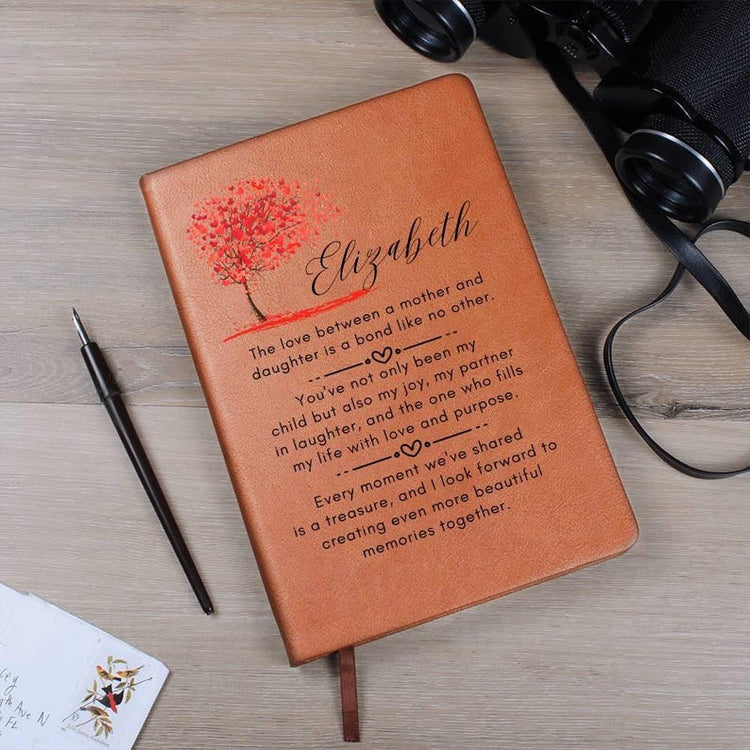 Elizabeth
The love between a mother and
daughter is a bond like no other.
You've not only been my
child but also my joy, my partner
in laughter, and the one who fills
my life with love and purpose.
Every moment we've shared
is a treasure, and I look forward to
creating even more beautiful
memories together.
Ave N
FL